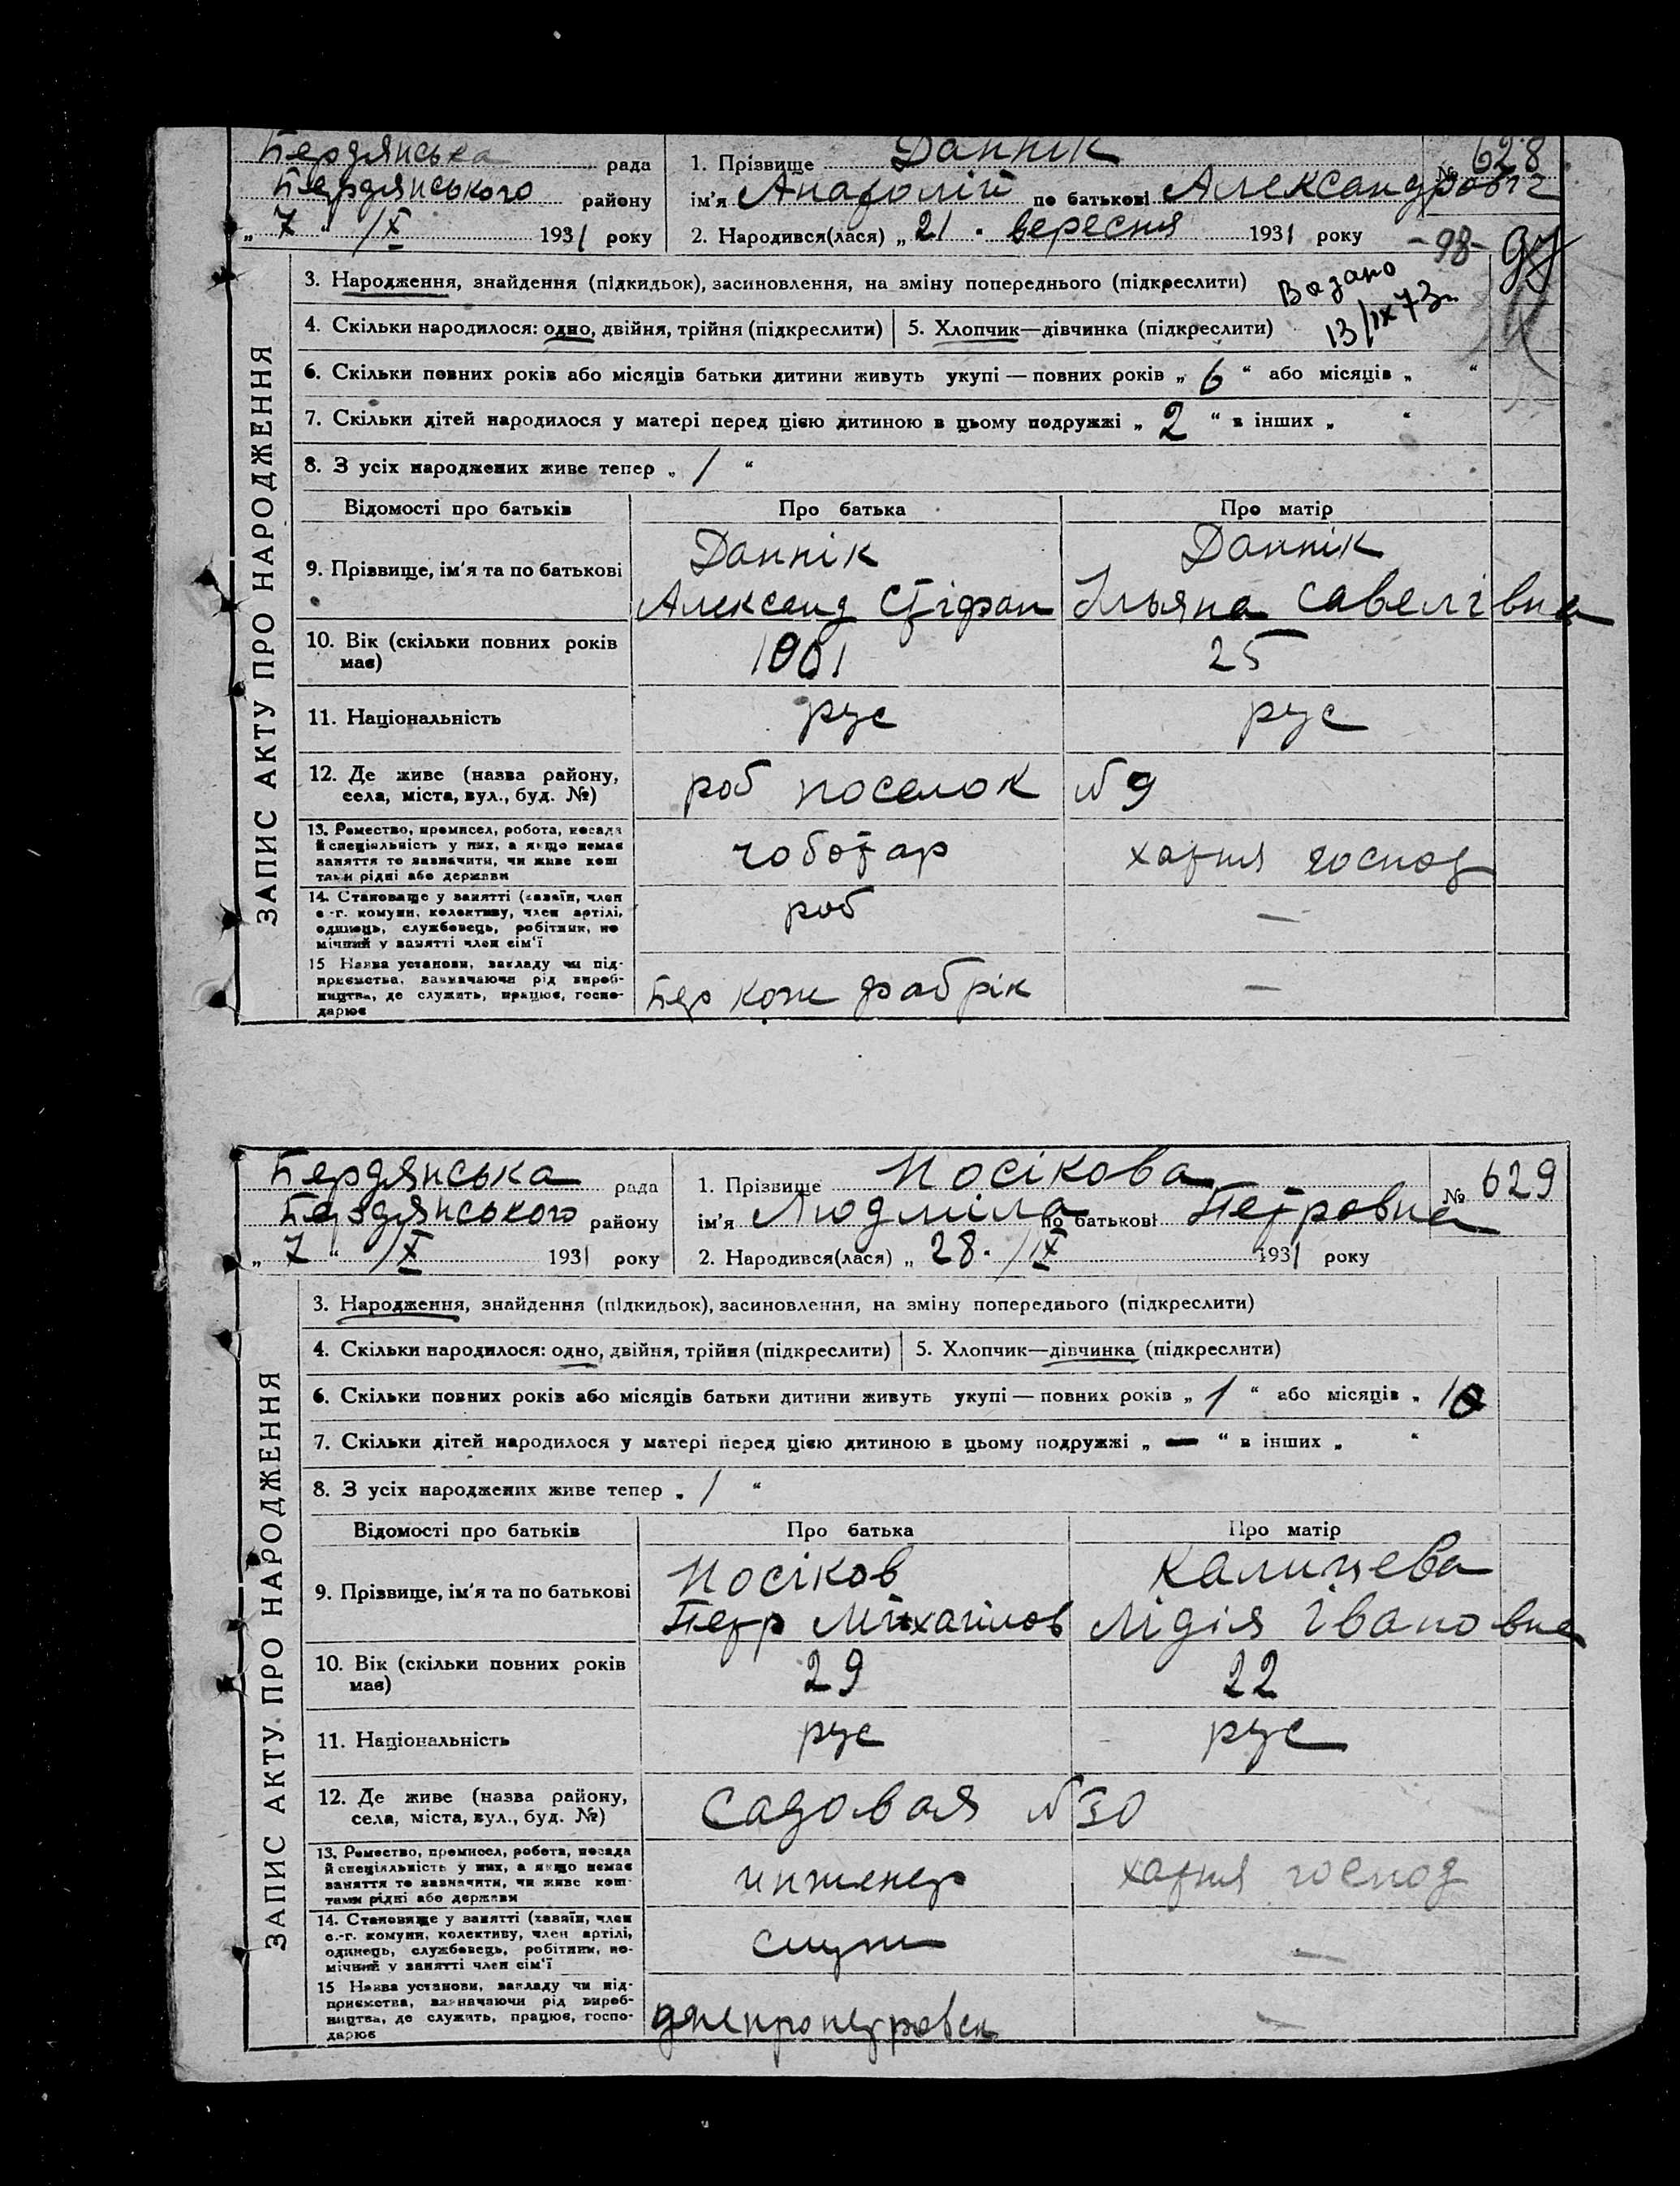 Бердянська рада
Бердянського району
„ 7 “ /X 1931 року
1. Прізвище Даннік
№ 628
ім'я Анатолій по батькові Александровіч
2. Народився(лася) „ 21 . вересня 1931 року
-98-
ЗАПИС АКТУ ПРО НАРОДЖЕННЯ
3. Народження, знайдення (підкидьок), засиновлення, на зміну попереднього (підкреслити)
13/IX 73г.
4. Скільки народилося: одно, двійня, трійня (підкреслити)
5. Хлопчик—дівчинка (підкреслити)
6. Скільки повних років або місяців батьки дитини живуть укупі — повних років „ 6 “ або місяців „ “
7. Скільки дітей народилося у матері перед цією дитиною в цьому подружжі „ 2 “ в інших „ “
8. З усіх народжених живе тепер „ 1 “
Відомості про батьків Про батька Про матір
9. Прізвище, ім'я та по батькові
Даннік Даннік
Александ Стіфан Ульяна Савелівна
10. Вік (скільки повних років має) 1901 25
11. Національність рус рус
12. Де живе (назва району, села, міста, вул., буд. №) роб поселок № 9
13. Ремество, промисел, робота, посада
й спеціяльність у них, а якщо немає
заняття то зазначити, чи живе кош
тами рідні або держави
чоботар хатня господ
14. Становище у занятті (хазяїн, член
с.-г. комуни, колективу, член артілі,
одинець, службовець, робітник, по
мічний у занятті член сім'ї
роб —
15 Назва установи, закладу чи під-
приємства, зазначаючи рід вироб-
ництва, де служить, працює, госпо-
дарює
Бер кож фабрік —
Бердянська рада
Бердянського району
„ 7 “ /X 1931 року
1. Прізвище Носікова
№ 629
ім'я Людміла по батькові Петровна
2. Народився(лася) „ 28. /IX 1931 року
ЗАПИС АКТУ ПРО НАРОДЖЕННЯ
3. Народження, знайдення (підкидьок), засиновлення, на зміну попереднього (підкреслити)
4. Скільки народилося: одно, двійня, трійня (підкреслити)
5. Хлопчик—дівчинка (підкреслити)
6. Скільки повних років або місяців батьки дитини живуть укупі — повних років „ 1 “ або місяців „ 10
7. Скільки дітей народилося у матері перед цією дитиною в цьому подружжі „ — “ в інших „ “
8. З усіх народжених живе тепер „ 1 “
Відомості про батьків Про батька Про матір
9. Прізвище, ім'я та по батькові
Носіков
Петр Міхайлов Лідія Івановна
10. Вік (скільки повних років має) 29 22
11. Національність рус рус
12. Де живе (назва району, села, міста, вул., буд. №) Садовая № 30
13. Ремество, промисел, робота, посада
й спеціяльність у них, а якщо немає
заняття то зазначити, чи живе кош-
тами рідні або держави
инженер хатня господ
14. Становище у занятті (хазяїн, член
с.-г. комуни, колективу, член артілі,
одинець, службовець, робітник, по-
мічний у занятті член сім'ї
служ —
15 Назва установи, закладу чи під-
приємства, зазначаючи рід вироб-
ництва, де служить, працює, госпо-
дарює
днепропетровск —